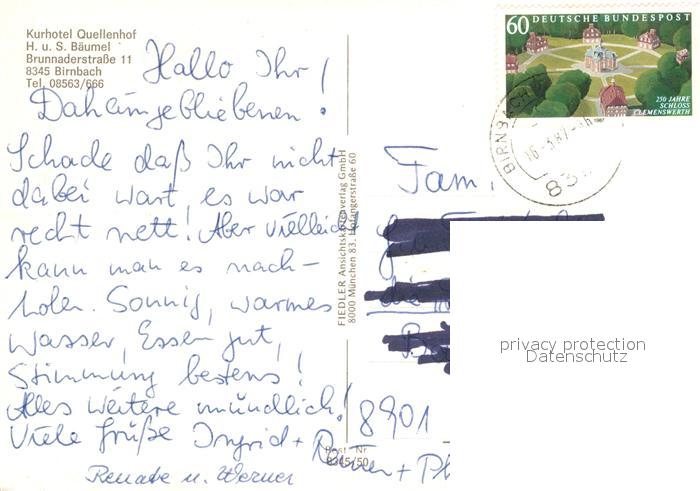 Kurhotel Quellenhof
H. u. S. Bäumel
Brunnaderstraße 11
8345 Birnbach
Tel. 08563/666
Hallo Ihr
Daheimgebliebenen!
Schade daß Ihr nicht
dabei wart, es war
recht nett! Aber vielleicht
kann man es nach-
holen. Sonnig, warmes
Wasser, Essen gut,
Stimmung bestens!
Alles Weitere mündlich!
Viele Grüße Ingrid +
Renate u. Werner
FIEDLER Ansichtskartenverlag GmbH
8000 München 83,
60
DEUTSCHE BUNDESPOST
250 JAHRE
SCHLOSS
CLEMENSWERTH
1987
BIRNBACH
Fam.
8901
privacy protection
Datenschutz
Best. Nr.
8345/50